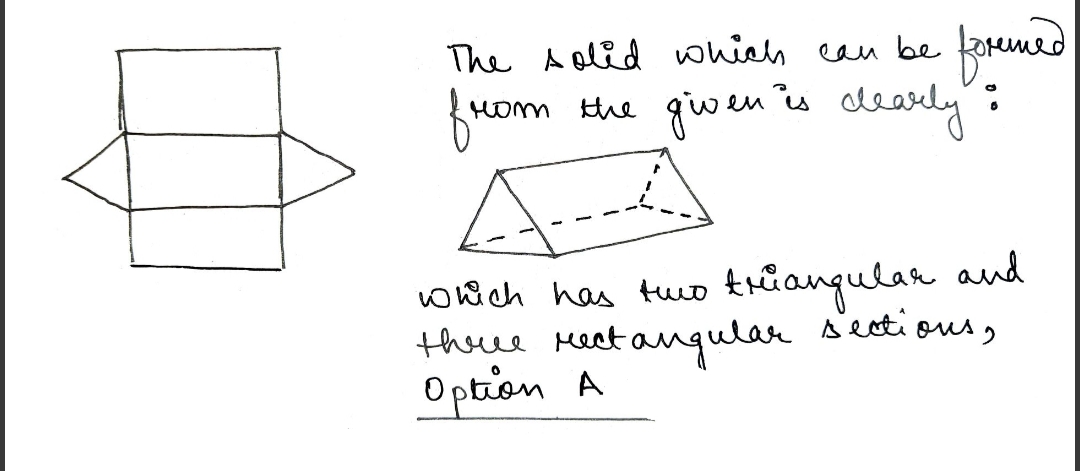 The solid which can be formed
from the given is clearly :
which has two triangular and
three rectangular sections,
Option A